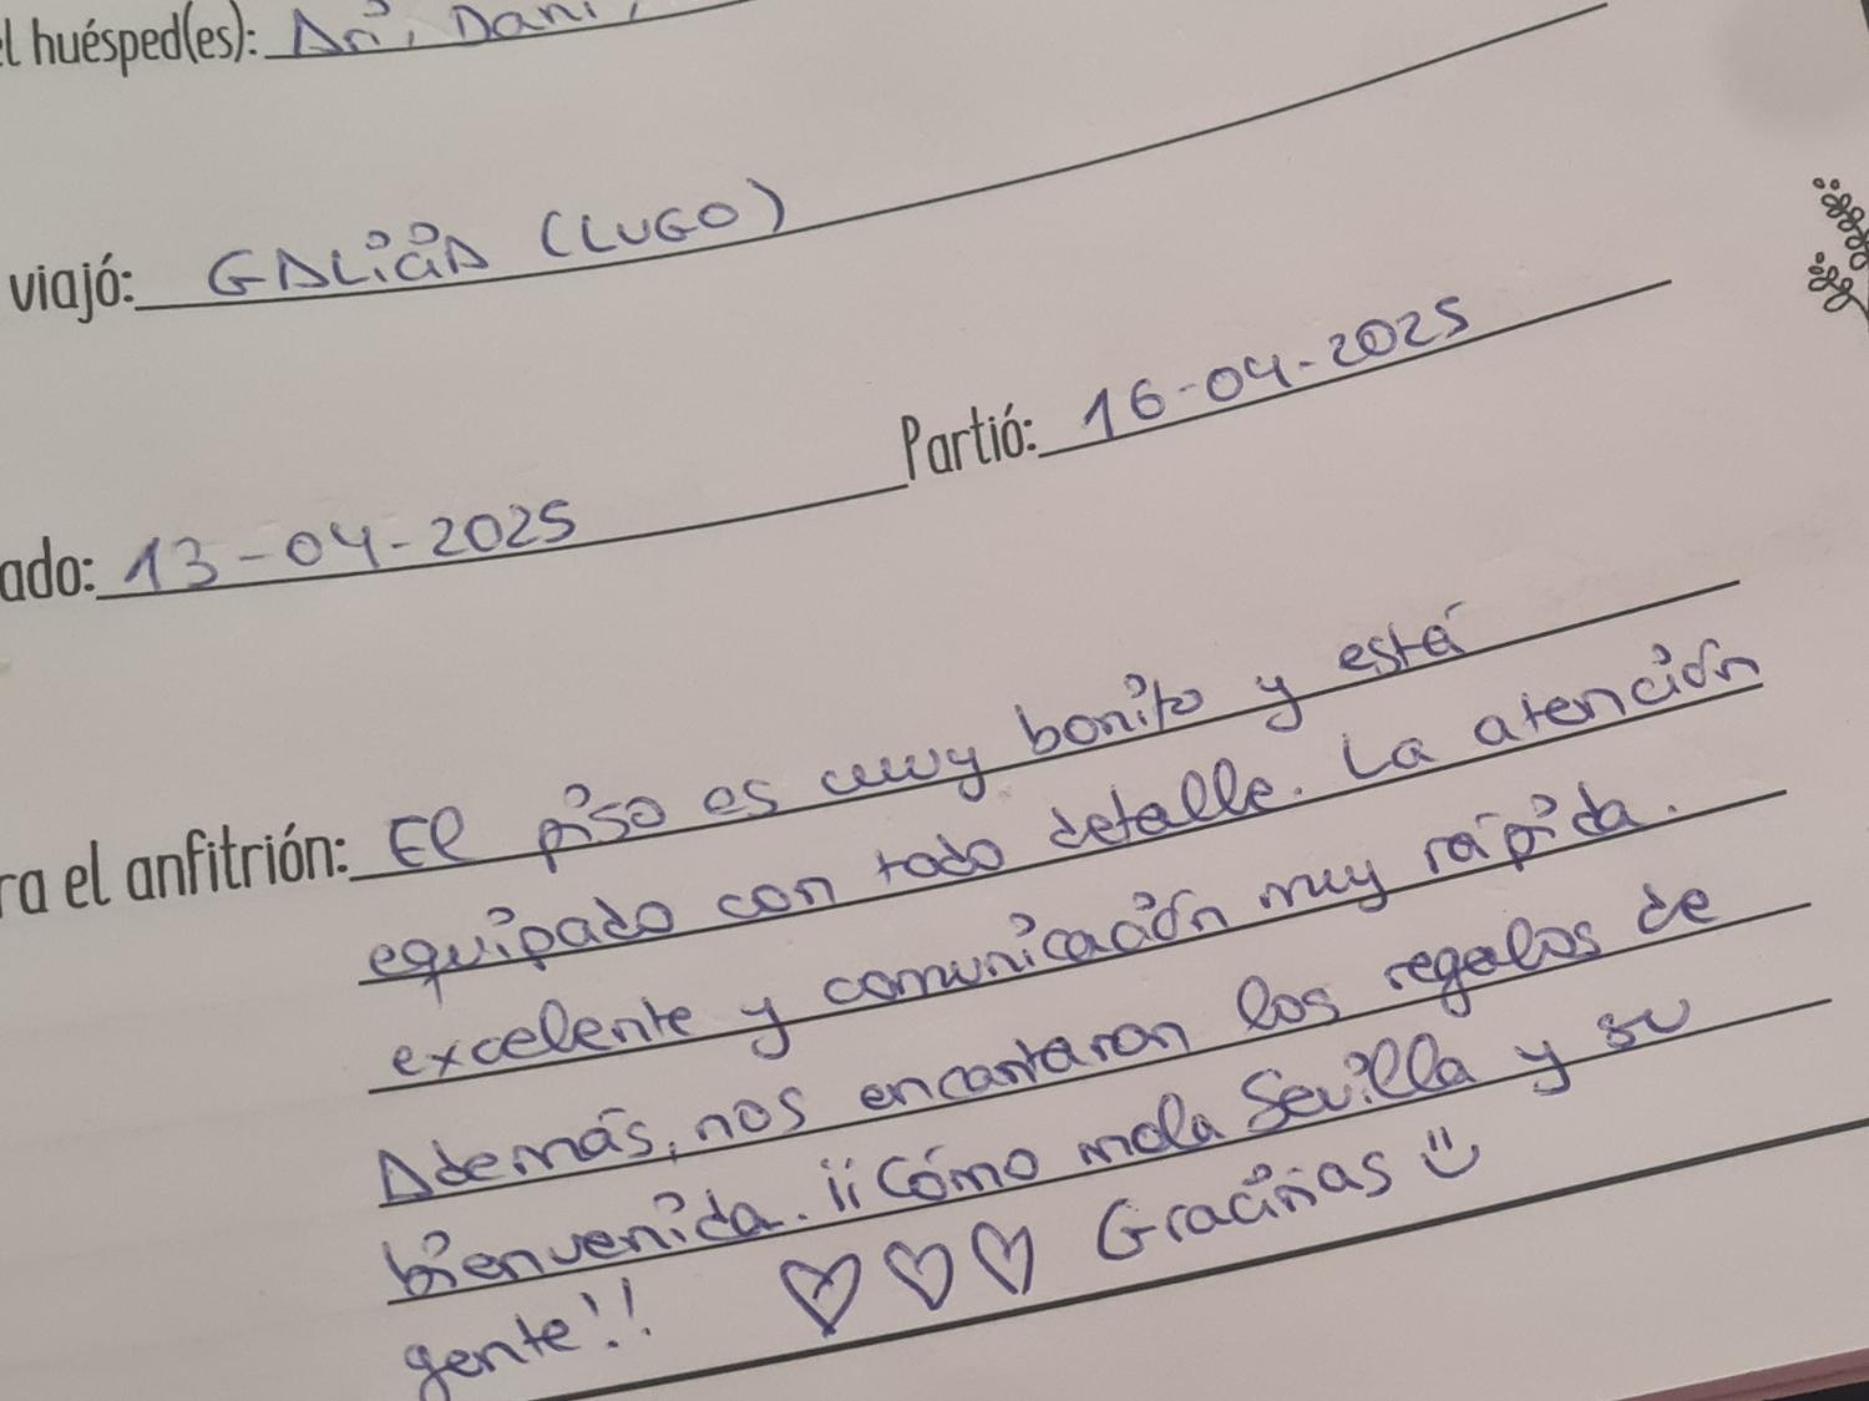 el huésped(es): Ari, Dani,
viajó: GALiCiA (LUGO)
Partió: 16-04-2025
ado: 13-04-2025
ra el anfitrión: El piso es muy bonito y está
equipado con todo detalle. La atención
excelente y comunicación muy rápida.
Además, nos encantaron los regalos de
bienvenida. ¡¡Cómo mola Sevilla y su
gente!! ♡♡♡ Graciñas ü